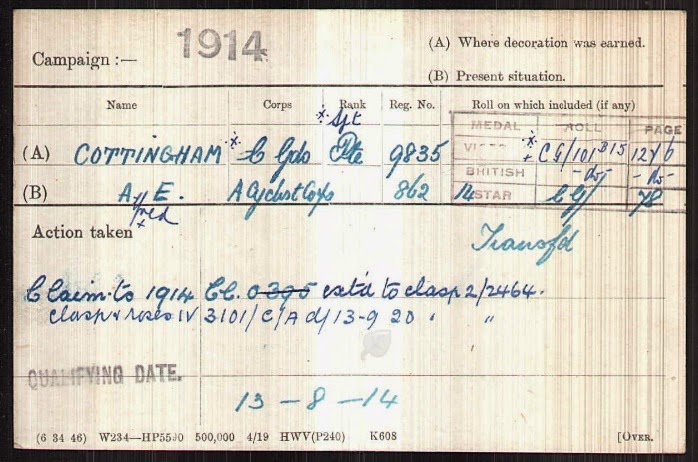 1914
Campaign :—
(A) Where decoration was earned.
(B) Present situation.
Name Corps Rank Reg. No. Roll on which included (if any)
MEDAL ROLL PAGE
* Sjt
(A) COTTINGHAM * C Gds Pte 9835 VICT * + CG/101 B15
BRITISH - do - - do -
(B) A E. A Cyclist Corps 862 14 STAR CG/ 78
fred *
Action taken Transfd
Claim to 1914 Cl. 0395 ext'd to clasp 2/2464.
clasp & roses IV 3101/C/Ad/13-9 20 " "
QUALIFYING DATE.
13 - 8 - 14
(6 34 46) W234—HP5590 500,000 4/19 HWV(P240) K608 [OVER.